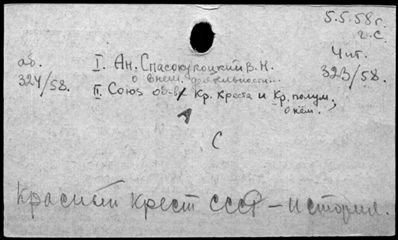 5.5.58г.
г.С.
Чит.
323/58.
аб.
324/58.
I. Ан. Спасокукоцкий В.Н.
о внем. деятельности...
II. Союз об-в Кр. Креста и Кр. полум.,
о нём.
С
Красный крест СССР – история.